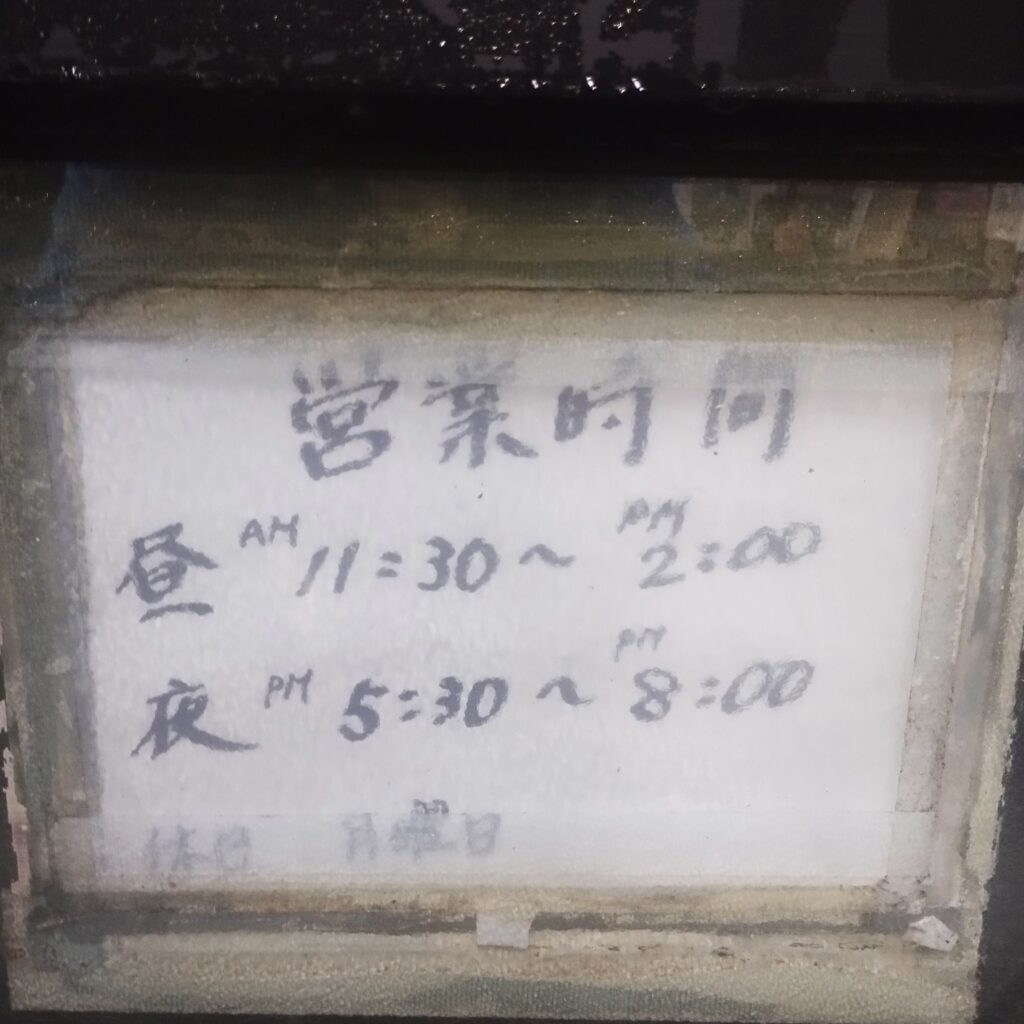 営業時間
昼 AM 11:30～PM 2:00
夜 PM 5:30～PM 8:00
休日 月曜日